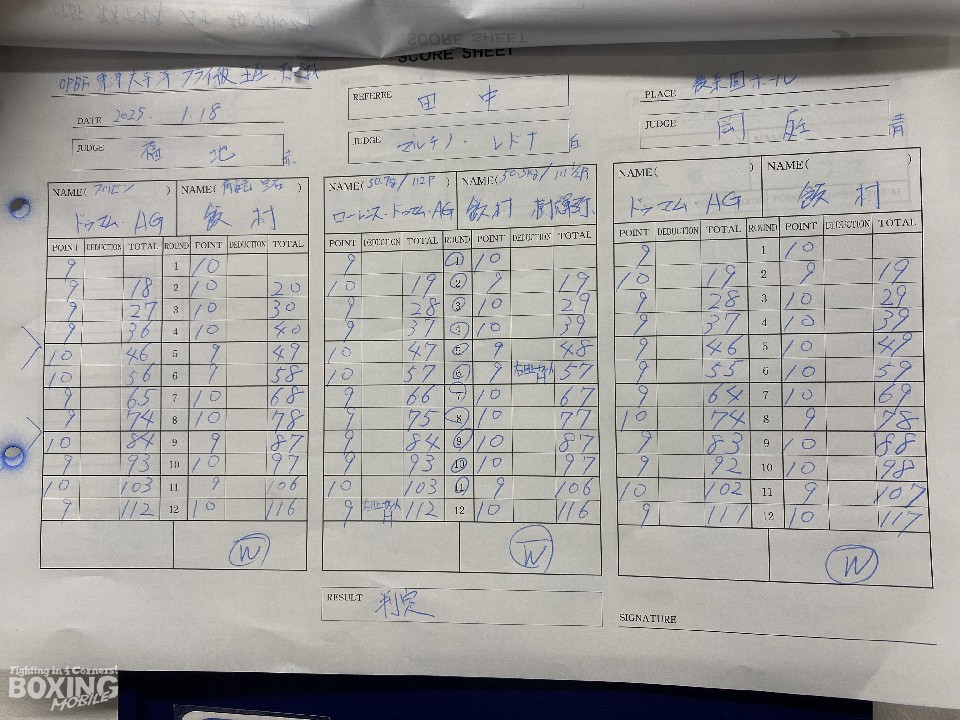 SCORE SHEET
SCORE SHEET
OPBF 東洋太平洋 フライ級 王座
DATE 2025. 1.18
REFEREE 田中
PLACE 後楽園ホール
JUDGE 福地
JUDGE マルチノ・レドナ
JUDGE 岡庭 青
NAME( フィリピン ) NAME( )
ドゥマム・AG 飯村
NAME(50.7kg/112P NAME(50.5kg/111 1/2P
ローレンス・ドゥマム・AG 飯村 樹輝弥
NAME( ) NAME( )
ドゥマム・AG 飯村
POINT DEDUCTION TOTAL ROUND POINT DEDUCTION TOTAL
9 1 10
9 18 2 10 20
9 27 3 10 30
9 36 4 10 40
10 46 5 9 49
10 56 6 9 58
9 65 7 10 68
9 74 8 10 78
10 84 9 9 87
9 93 10 10 97
10 103 11 9 106
9 112 12 10 116
W
POINT DEDUCTION TOTAL ROUND POINT DEDUCTION TOTAL
9 1 10
10 19 2 9 19
9 28 3 10 29
9 37 4 10 39
10 47 5 9 48
10 57 6 9 57
9 66 7 10 67
9 75 8 10 77
9 84 9 10 87
9 93 10 10 97
10 103 11 9 106
9 112 12 10 116
W
POINT DEDUCTION TOTAL ROUND POINT DEDUCTION TOTAL
9 1 10
10 19 2 9 19
9 28 3 10 29
9 37 4 10 39
9 46 5 10 49
9 55 6 10 59
9 64 7 10 69
10 74 8 9 78
9 83 9 10 88
9 92 10 10 98
10 102 11 9 107
9 111 12 10 117
W
RESULT 判定
SIGNATURE
Fighting in 4 Corners!
BOXING
MOBILE